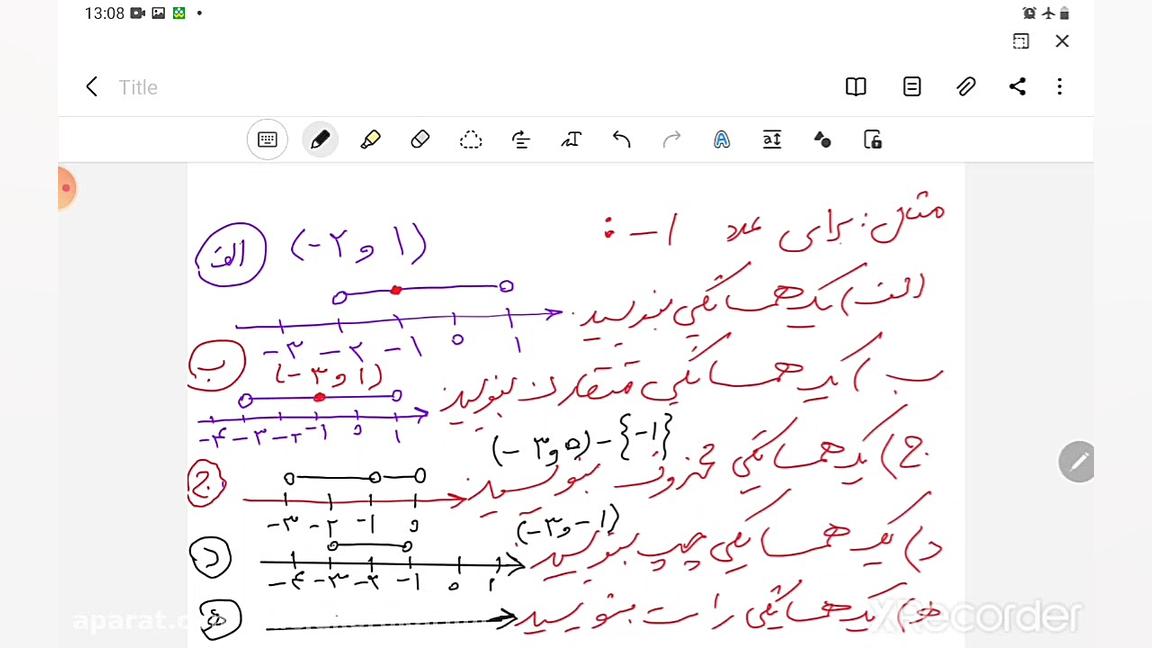 13:08
Title
مثال: برای عدد -۱ :
الف) یک همسایگی بنویسید.
الف (-۲ و ۱)
-۳ -۲ -۱ ۰ ۱
ب) یک همسایگی متقارن بنویسید
ب (-۳ و ۱)
-۴ -۳ -۲ -۱ ۰ ۱
ج) یک همسایگی محذوف بنویسید
(-۳ و ۰) - {-۱}
ج
-۳ -۲ -۱ ۰
د) یک همسایگی چپ بنویسید
(-۳ و -۱)
د
-۴ -۳ -۲ -۱ ۰ ۱
ه) یک همسایگی راست بنویسید
ه
aparat.c
XRecorder